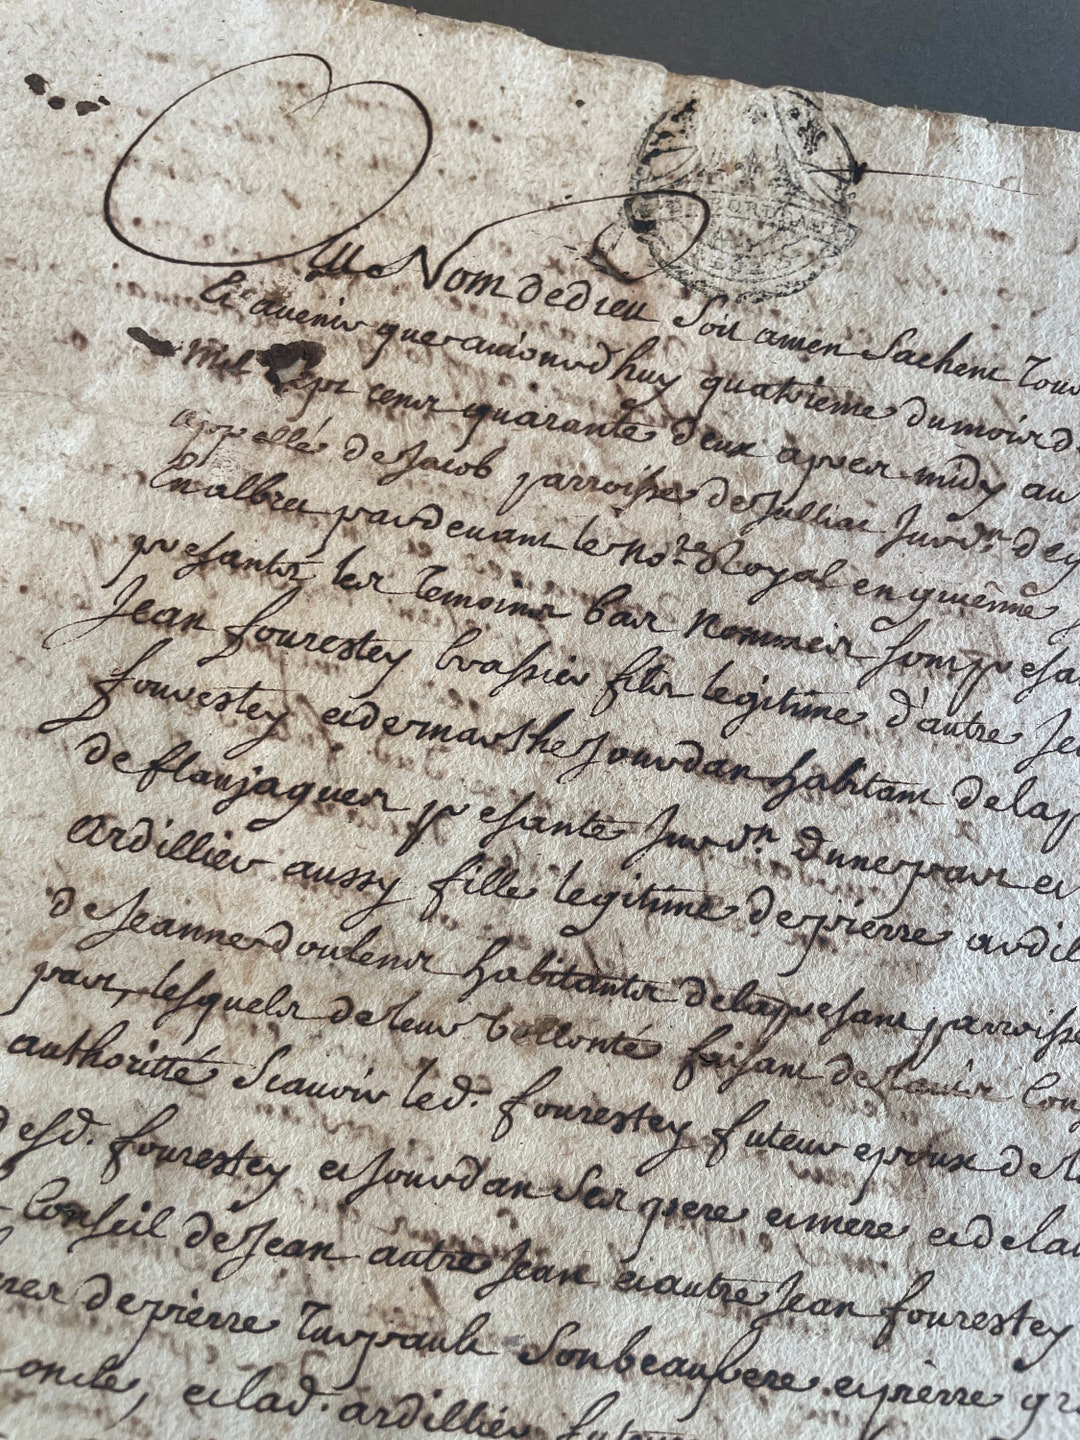 BORDEAUX
Au Nom de dieu Soit amen Sachent Tous
Et avenir que aujourdhuy quatrieme du mois d
Mil Sept cens quarante deux apres midy au
appellé de Jacob parroisse de Julliac Jurd.n de
En albret pardevant le no.re Royal en guienne
presants les Temoins bas Nommeis Sompresa
Jean fourestey brassier fils legitime d'autre Je
fourestey et de marthe Jourdan habitant de lap
de flaujagues presante Jurd.n dune part et
Ardillier aussy fille legitime de pierre ardil
de Jeanne doulens habitants de la presant parroisse
part, lesquels de leur vollonté faisant de l'avis Cons
authoritté Scavoir led. fourestey futeur epoux de l
desd. fourestey et Jourdan Ses pere et mere et de la
Conseil de Jean autre Jean et autre Jean fourestey
de pierre Turpault Son beaufrere et pierre gr
oncle, et lad. ardillier futeure